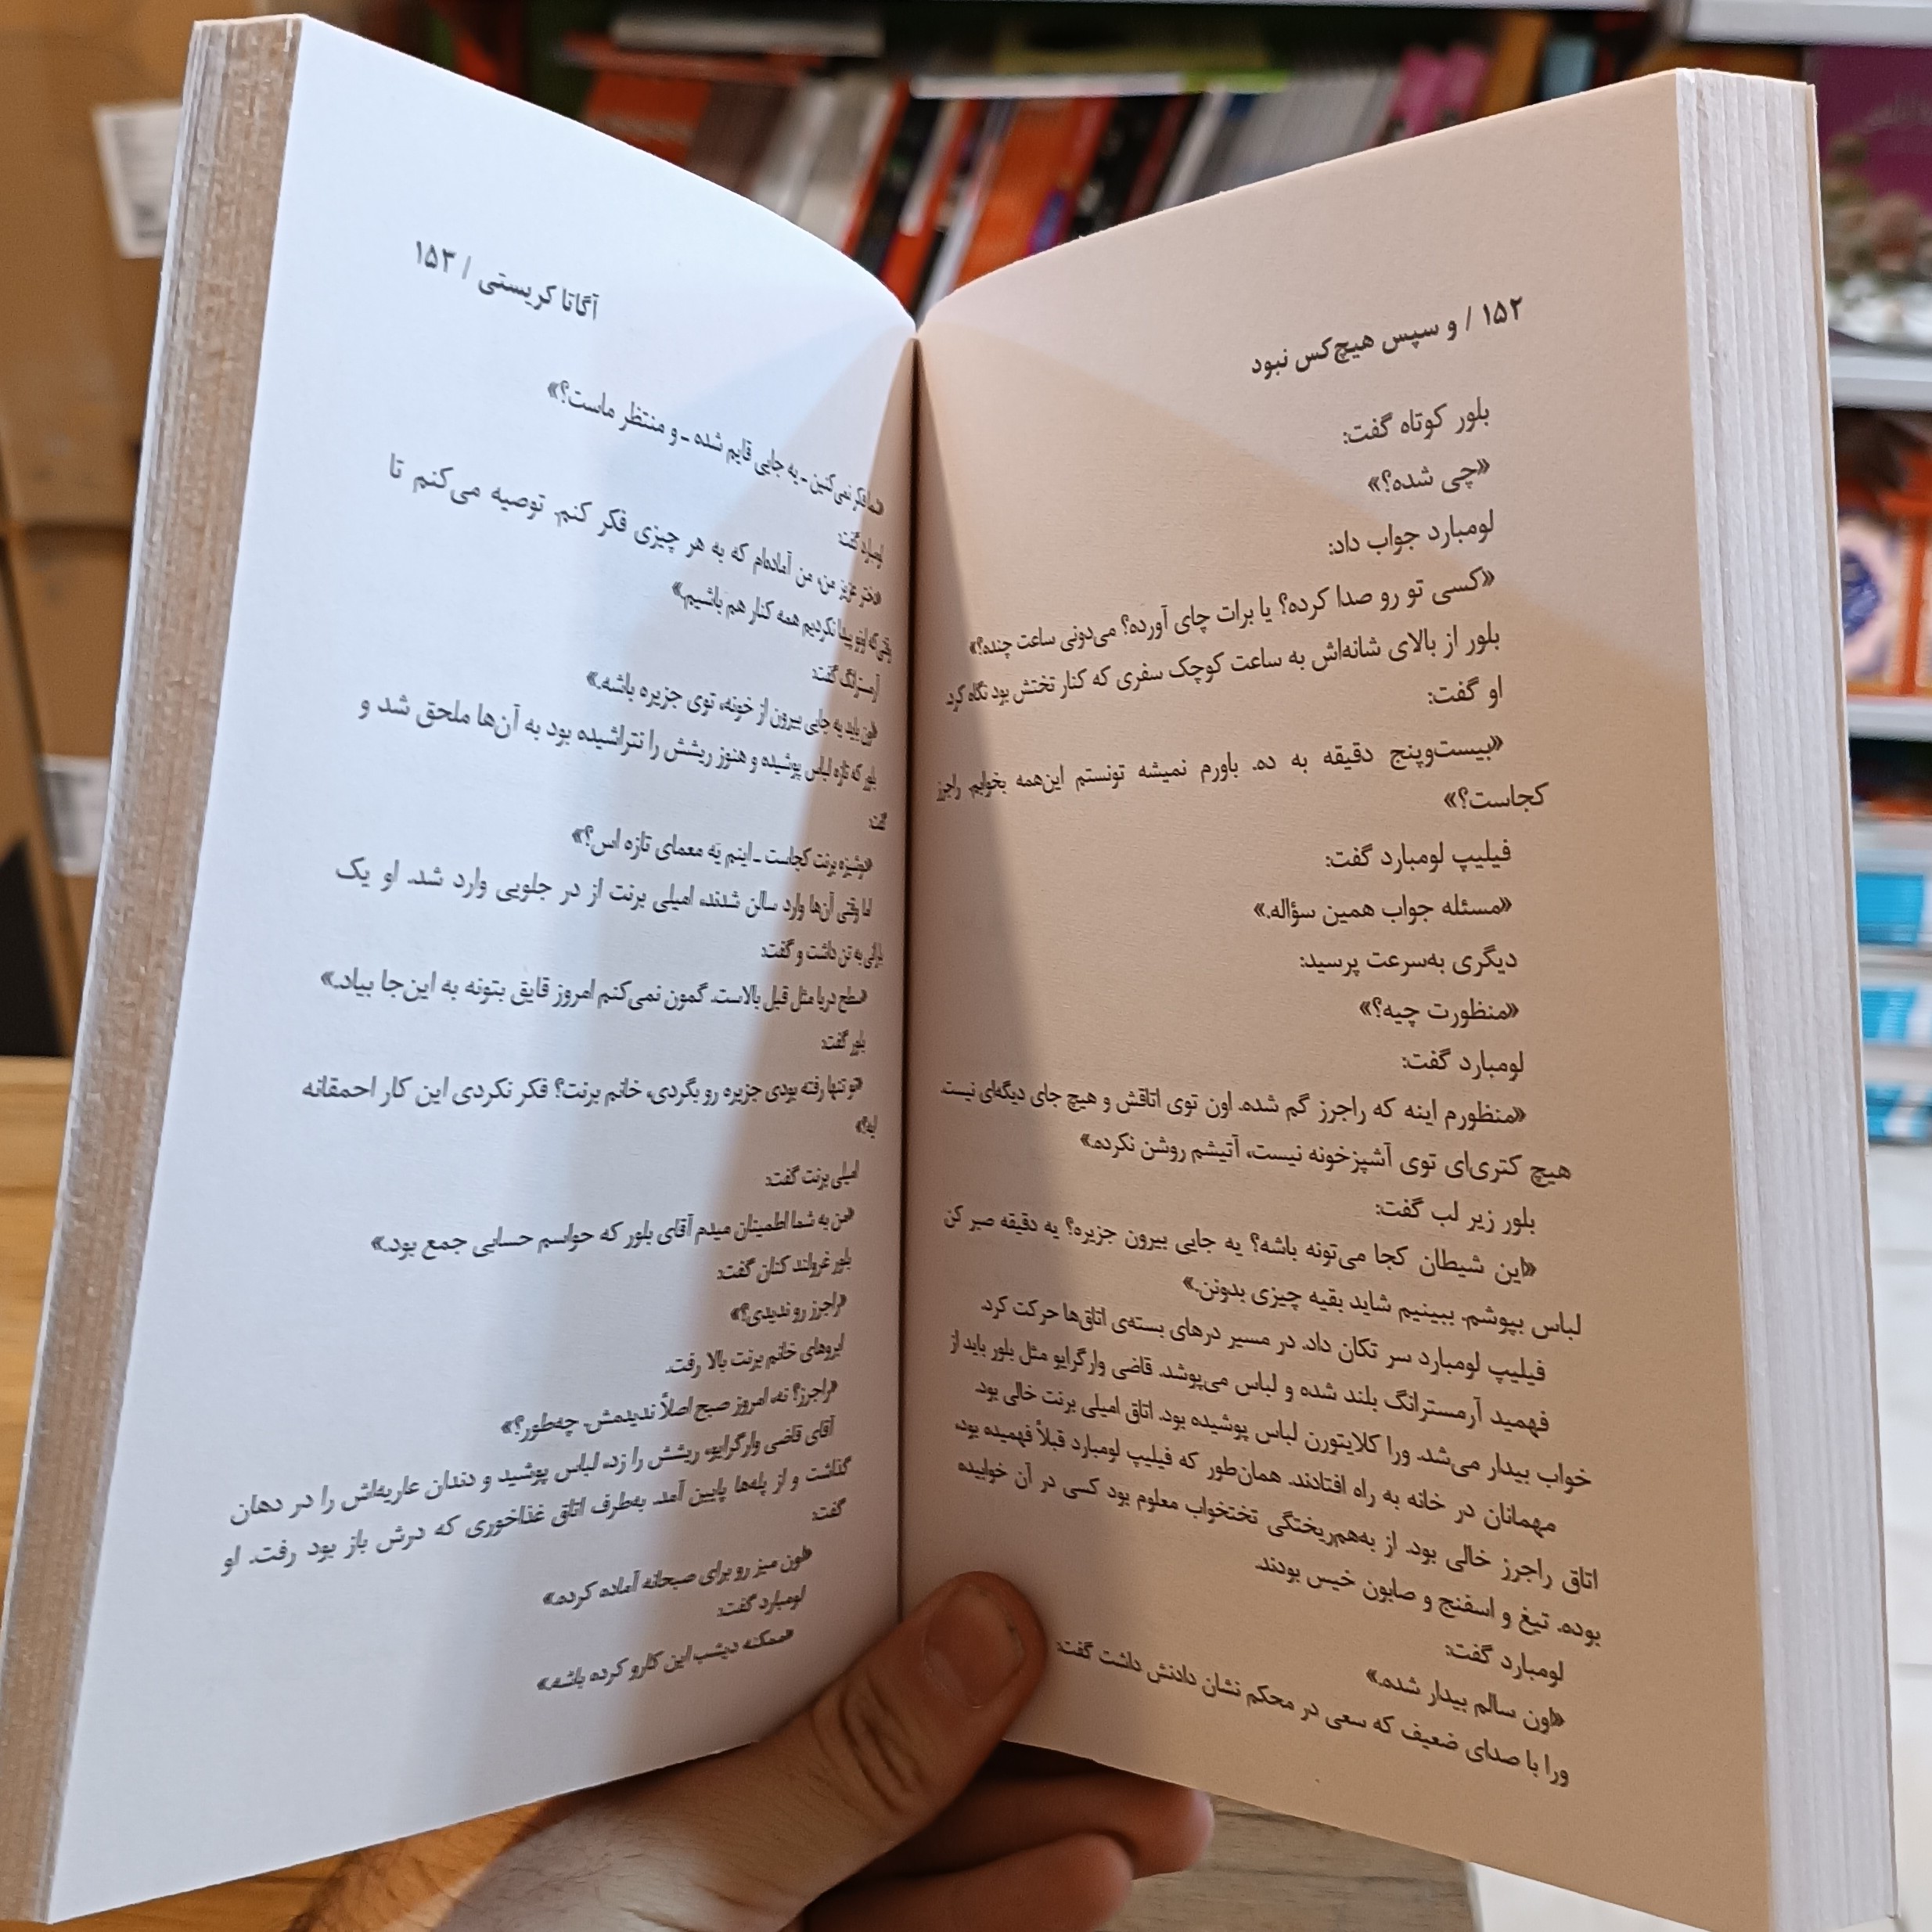 ۱۵۲ / و سپس هیچ‌کس نبود
بلور کوتاه گفت:
«چی شده؟»
لومبارد جواب داد:
«کسی تو رو صدا کرده؟ یا برات چای آورده؟ می‌دونی ساعت چنده؟»
بلور از بالای شانه‌اش به ساعت کوچک سفری که کنار تختش بود نگاه کرد.
او گفت:
«بیست‌وپنج دقیقه به ده. باورم نمیشه تونستم این‌همه بخوابم. راجرز
کجاست؟»
فیلیپ لومبارد گفت:
«مسئله جواب همین سؤاله.»
دیگری به‌سرعت پرسید:
«منظورت چیه؟»
لومبارد گفت:
«منظورم اینه که راجرز گم شده. اون توی اتاقش و هیچ جای دیگه‌ای نیست.
هیچ کتری‌ای توی آشپزخونه نیست، آتیشم روشن نکرده.»
بلور زیر لب گفت:
«این شیطان کجا می‌تونه باشه؟ یه جایی بیرون جزیره؟ یه دقیقه صبر کن
لباس بپوشم. ببینیم شاید بقیه چیزی بدونن.»
فیلیپ لومبارد سر تکان داد. در مسیر درهای بسته‌ی اتاق‌ها حرکت کرد.
فهمید آرمسترانگ بلند شده و لباس می‌پوشد. قاضی وارگرایو مثل بلور باید از
خواب بیدار می‌شد. ورا کلایتورن لباس پوشیده بود. اتاق امیلی برنت خالی بود.
مهمانان در خانه به راه افتادند. همان‌طور که فیلیپ لومبارد قبلاً فهمیده بود،
اتاق راجرز خالی بود. از به‌هم‌ریختگی تختخواب معلوم بود کسی در آن خوابیده
بوده. تیغ و اسفنج و صابون خیس بودند.
لومبارد گفت:
«اون سالم بیدار شده.»
ورا با صدای ضعیف که سعی در محکم نشان دادنش داشت گفت:
آگاتا کریستی / ۱۵۳
«شما فکر نمی‌کنین ـ یه جایی قایم شده ـ و منتظر ماست؟»
لومبارد گفت:
«دختر عزیز من، من آماده‌ام که به هر چیزی فکر کنم. توصیه می‌کنم تا
وقتی که اونو پیدا نکردیم همه کنار هم باشیم.»
آرمسترانگ گفت:
«اون باید یه جایی بیرون از خونه، توی جزیره باشه.»
بلور که تازه لباس پوشیده و هنوز ریشش را نتراشیده بود به آن‌ها ملحق شد و
گفت:
«دوشیزه برنت کجاست ـ اینم یه معمای تازه اس؟»
اما وقتی آن‌ها وارد سالن شدند، امیلی برنت از در جلویی وارد شد. او یک
بارانی به تن داشت و گفت:
«سطح دریا مثل قبل بالاست. گمون نمی‌کنم امروز قایق بتونه به این‌جا بیاد.»
بلور گفت:
«تو تنها رفته بودی جزیره رو بگردی، خانم برنت؟ فکر نکردی این کار احمقانه
ایه؟»
امیلی برنت گفت:
«من به شما اطمینان میدم آقای بلور که حواسم حسابی جمع بود.»
بلور غرولند کنان گفت:
«راجرز رو ندیدی؟»
ابروهای خانم برنت بالا رفت.
«راجرز؟ نه، امروز صبح اصلاً ندیدمش. چه‌طور؟»
آقای قاضی وارگرایو، ریشش را زد، لباس پوشید و دندان عاریه‌اش را در دهان
گذاشت و از پله‌ها پایین آمد. به‌طرف اتاق غذاخوری که درش باز بود رفت. او
گفت:
«اون میز رو برای صبحانه آماده کرده.»
لومبارد گفت:
«ممکنه دیشب این کارو کرده باشه.»